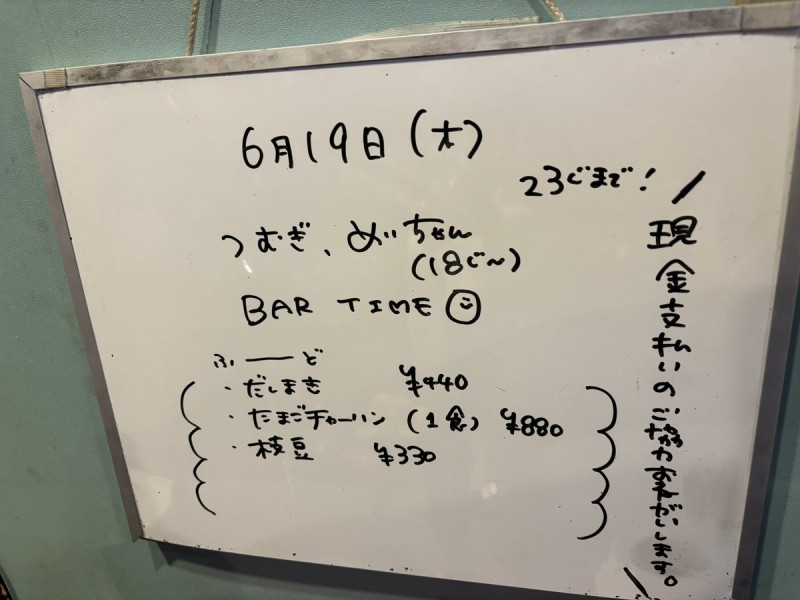 6月19日(木)
23じまで!
つむぎ、めいちゃん
(18じ〜)
BAR TIME
ふーど
・だしまき ¥440
・たまごチャーハン (1食) ¥880
・枝豆 ¥330
現金支払いのご協力お願いします。